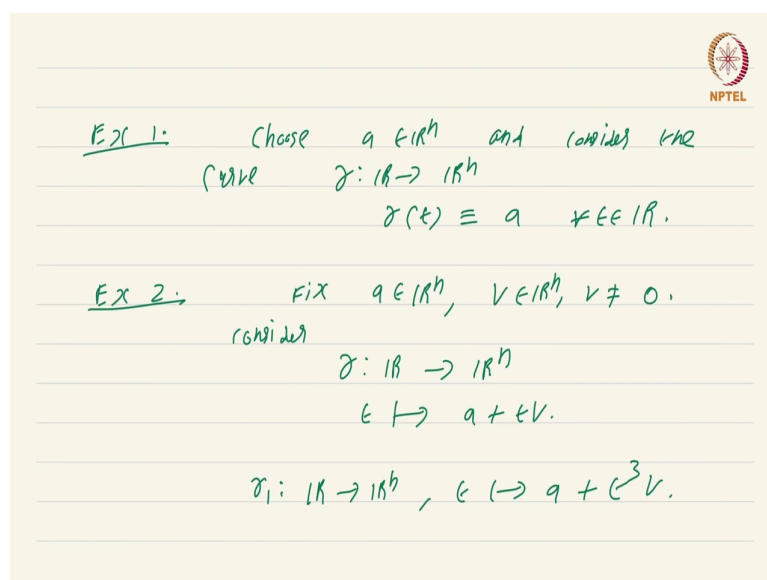 NPTEL
Ex 1: Choose a ∈ ℝⁿ and consider the
curve γ: ℝ → ℝⁿ
γ(t) ≡ a ∀ t ∈ ℝ.
Ex 2: Fix a ∈ ℝⁿ, v ∈ ℝⁿ, v ≠ 0.
consider
γ: ℝ → ℝⁿ
t ↦ a + tv.
γ₁: ℝ → ℝⁿ, t ↦ a + t³v.